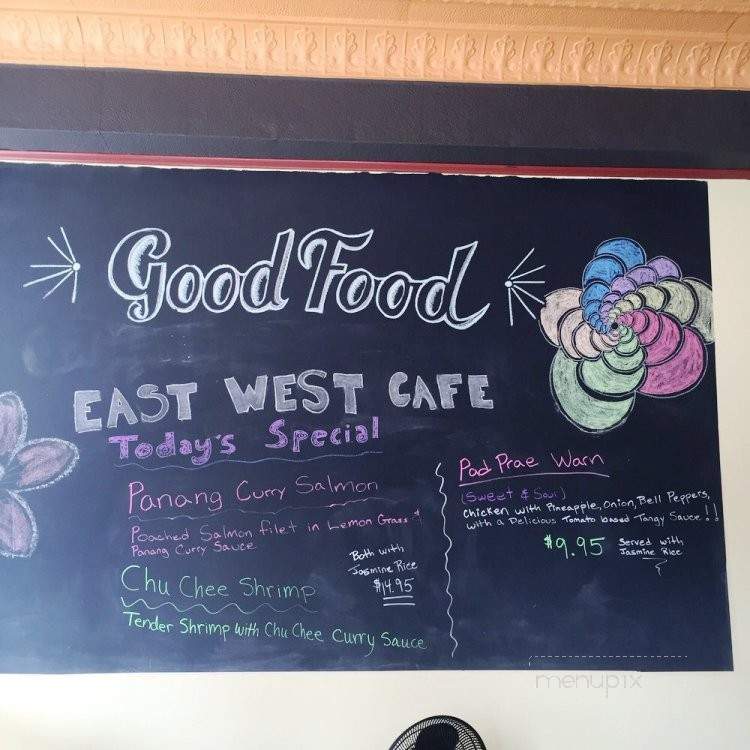 Good Food
EAST WEST CAFE
Today's Special
Panang Curry Salmon
Poached Salmon filet in Lemon Grass &
Panang Curry Sauce
Both with
Jasmine Rice
$14.95
Chu Chee Shrimp
Tender Shrimp with Chu Chee Curry Sauce
Pad Prae Warn
(Sweet & Sour)
Chicken with Pineapple, Onion, Bell Peppers,
with a Delicious Tomato based Tangy Sauce!!
$9.95
Served with
Jasmine Rice
menupix